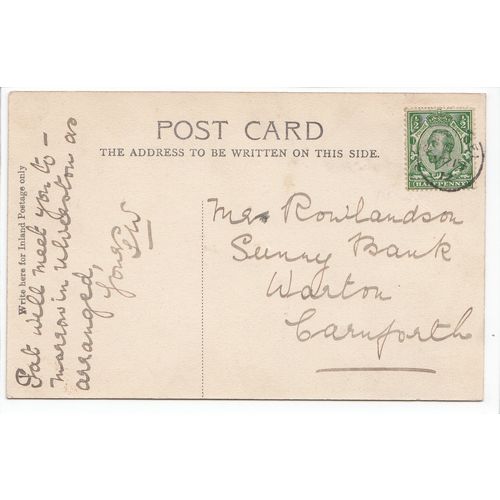 POST CARD
THE ADDRESS TO BE WRITTEN ON THIS SIDE.
Write here for Inland Postage only
will meet you to-
morrow in Ulverston as
arranged,
Yours
½ ½
HALFPENNY
Mrs Rowlandson
Sunny Bank
Warton
Carnforth